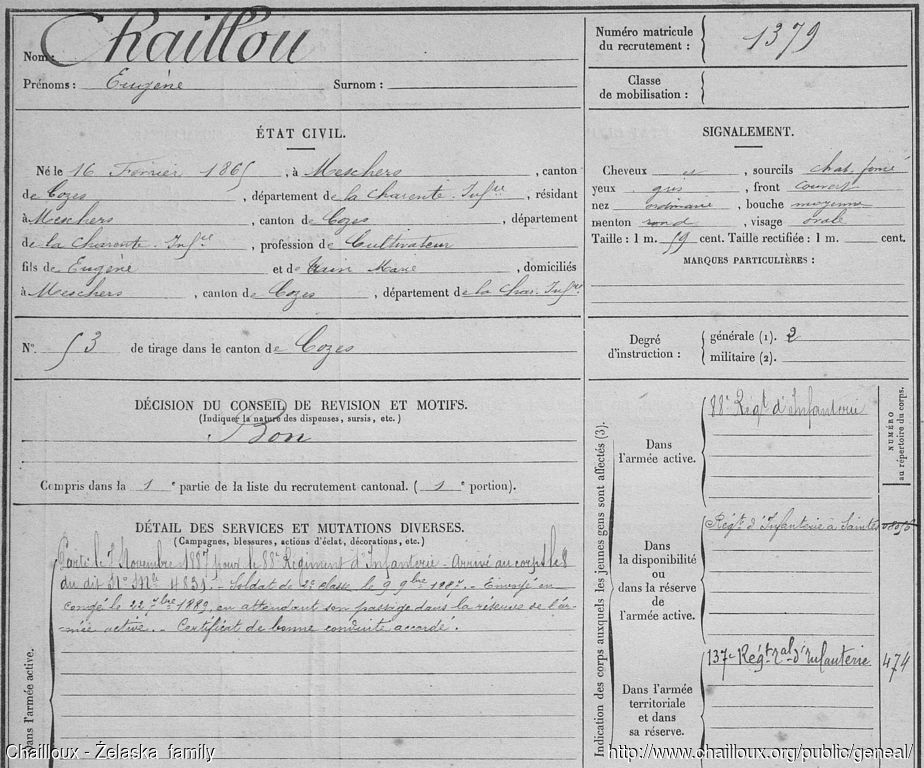 Nom: Chaillou
Prénoms: Eugène Surnom:
ÉTAT CIVIL.
Né le 16 Février 1865, à Meschers, canton
de Cozes, département de la Charente Infre, résidant
à Meschers canton de Cozes, département
de la Charente Infre, profession de Cultivateur
fils de Eugène et de Marie, domiciliés
à Meschers, canton de Cozes, département de la Char. Infre
N° 53 de tirage dans le canton de Cozes
DÉCISION DU CONSEIL DE REVISION ET MOTIFS.
(Indiquer la nature des dispenses, sursis, etc.)
Bon
Compris dans la 1e partie de la liste du recrutement cantonal. (1e portion).
DÉTAIL DES SERVICES ET MUTATIONS DIVERSES.
(Campagnes, blessures, actions d'éclat, décorations, etc.)
Dans l'armée active.
Parti le 7 Novembre 1887 pour le 88e Régiment d'Infanterie - Arrivé au corps le 8
du dit Nº Mle 4831. - Soldat de 2e classe le 9 9bre 1887. - Envoyé en
congé le 22 7bre 1889, en attendant son passage dans la réserve de l'ar-
mée active. - Certificat de bonne conduite accordé.
Numéro matricule
du recrutement : 1379
Classe
de mobilisation :
SIGNALEMENT.
Cheveux et, sourcils chat. foncé
yeux gris, front couvert
nez ordinaire, bouche moyenne
menton rond, visage ovale
Taille : 1 m. 59 cent. Taille rectifiée : 1 m. cent.
MARQUES PARTICULIÈRES :
Degré
d'instruction :
générale (1). 2
militaire (2).
Indication des corps auxquels les jeunes gens sont affectés (3).
NUMÉRO
au répertoire du corps.
Dans
l'armée active.
88e Régt d'Infanterie
Dans
la disponibilité
ou
dans la réserve
de
l'armée active.
Régt d'Infanterie à Saintes
Dans l'armée
territoriale
et dans
sa réserve.
137e Régt Tal d'Infanterie 474
Chailloux - Żelaska family
http://www.chailloux.org/public/geneal/